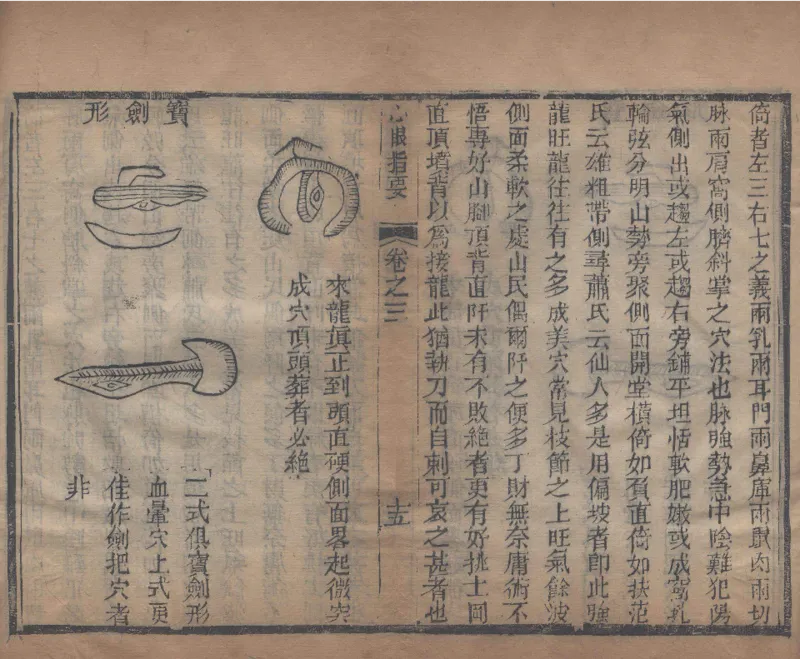 倚者左三右七之義兩乳兩耳門兩鼻庫兩獸肉兩切
脉兩肩窩側臍斜掌之穴法也脉強勢急中陰難犯陽
氣側出或趨左或趨右旁鋪平坦恬軟肥嫩或成窩乳
輪弦分明山勢旁聚側面開堂橫倚如負直倚如扶范
氏云雄粗帶側尋蕭氏云仙人多是用偏坡者即此強
龍旺龍往往有之多成美穴常見枝節之上旺氣餘波
側面柔軟之處山民偶爾阡之便多丁財無奈庸術不
悟專好山腳頂脊直阡未有不敗絕者更有好挑土岡
直頂墳背以為接龍此猶執刀而自刺可哀之甚者也
眼指要
卷之三
十五
來龍眞正到頭直硬側面畧起微突
成穴頂頭葬者必絕
寶劍形
二式俱寶劍形
血暈穴上式更
佳作劍把穴者
非